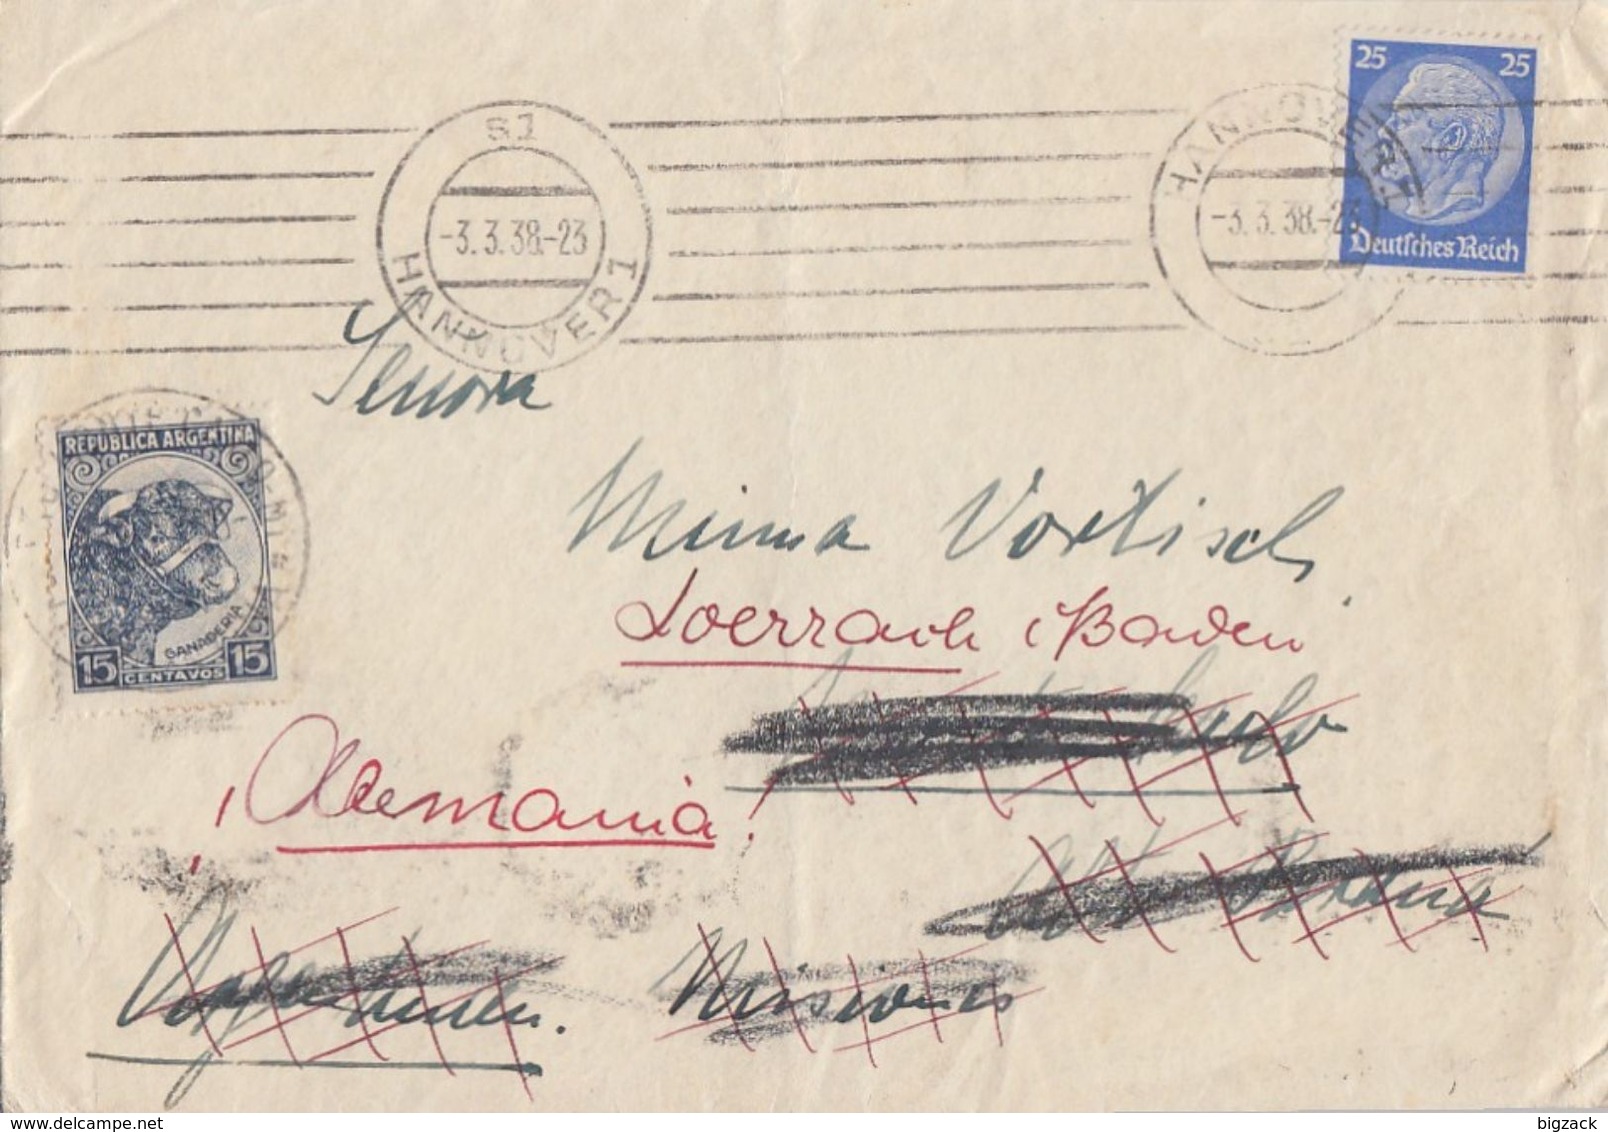 25 25
Deutsches Reich
S1
-3.3.38.-23
HANNOVER 1
HANNOVER 1
-3.3.38.-23
Sennora
REPUBLICA ARGENTINA
GANADERIA
15 CENTAVOS 15
Minna Vortisch
Loerrach i/Baden
Alemania!
Alto Parana
Argentinien. Misiones
bigzack